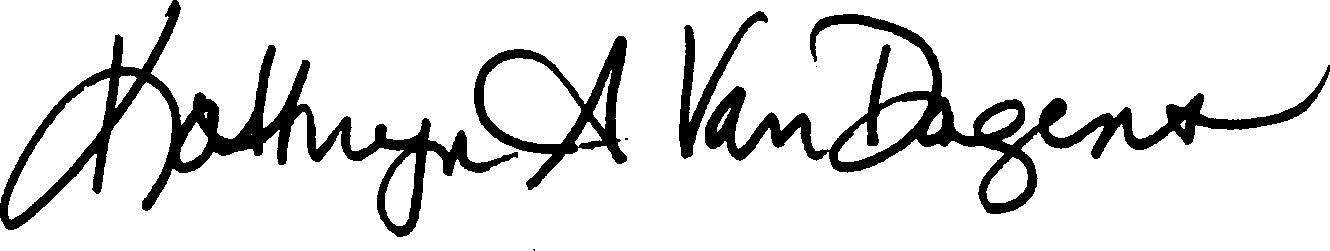 Kathryn A VanDagens